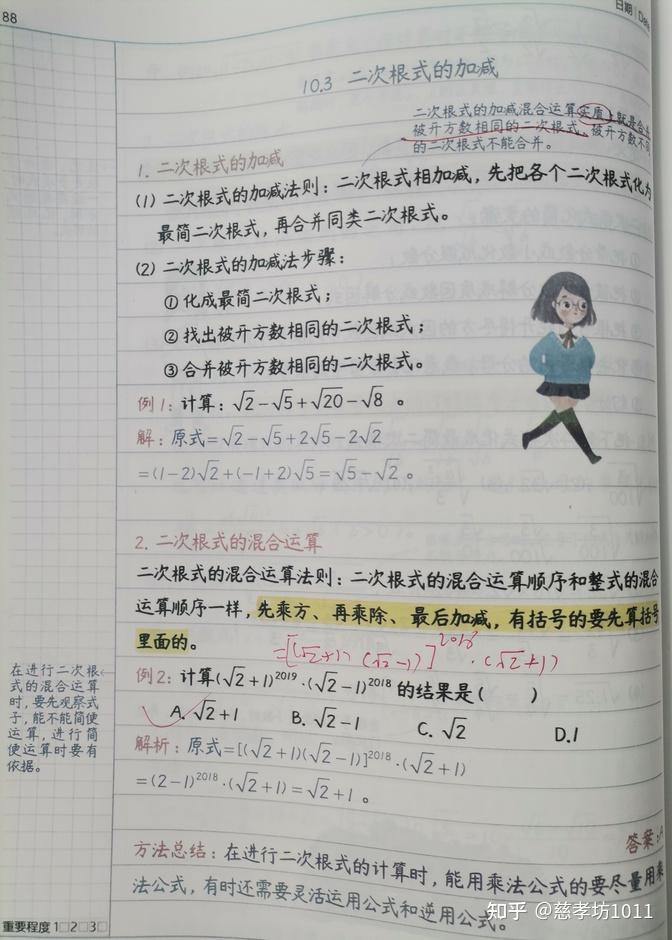 88
日期
10.3 二次根式的加减
二次根式的加减混合运算实质上就是合并
被开方数相同的二次根式,被开方数不同
的二次根式不能合并。
1. 二次根式的加减
(1) 二次根式的加减法则：二次根式相加减，先把各个二次根式化为
最简二次根式，再合并同类二次根式。
(2) 二次根式的加减法步骤：
①化成最简二次根式；
②找出被开方数相同的二次根式；
③合并被开方数相同的二次根式。
例1：计算：√2－√5＋√20－√8 。
解：原式＝√2－√5＋2√5－2√2
＝(1－2)√2＋(－1＋2)√5＝√5－√2 。
2. 二次根式的混合运算
二次根式的混合运算法则：二次根式的混合运算顺序和整式的混合
运算顺序一样，先乘方、再乘除、最后加减，有括号的要先算括号
里面的。
=[(√2+1)(√2-1)]²⁰¹⁸·(√2+1)
例2：计算(√2＋1)²⁰¹⁹·(√2－1)²⁰¹⁸的结果是( )
A. √2＋1 B. √2－1 C. √2 D.1
解析：原式＝[(√2＋1)(√2－1)]²⁰¹⁸·(√2＋1)
＝(2－1)²⁰¹⁸·(√2＋1)＝√2＋1 。
在进行二次根
式的混合运算
时，要先观察式
子，能不能简便
运算，进行简
便运算时要有
依据。
答案：A
方法总结：在进行二次根式的计算时，能用乘法公式的要尽量用乘
法公式，有时还需要灵活运用公式和逆用公式。
重要程度 1□2□3□
知乎 @慈孝坊1011